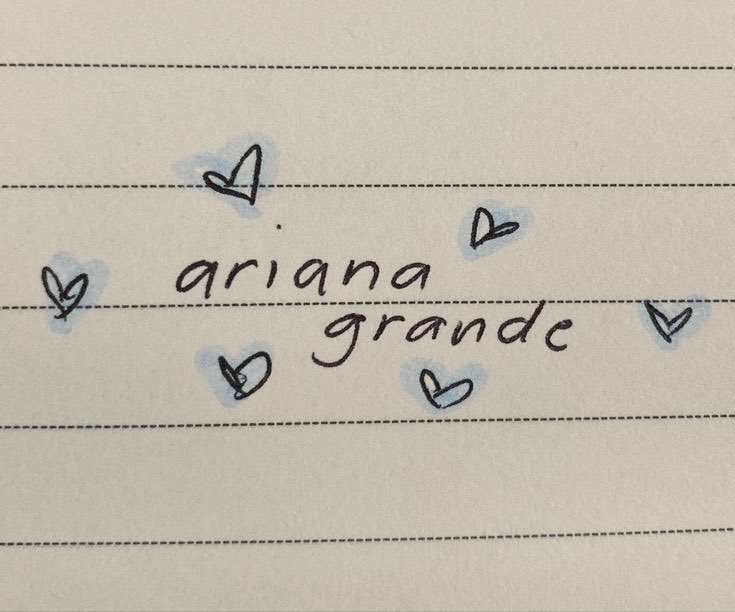 ariana
grande